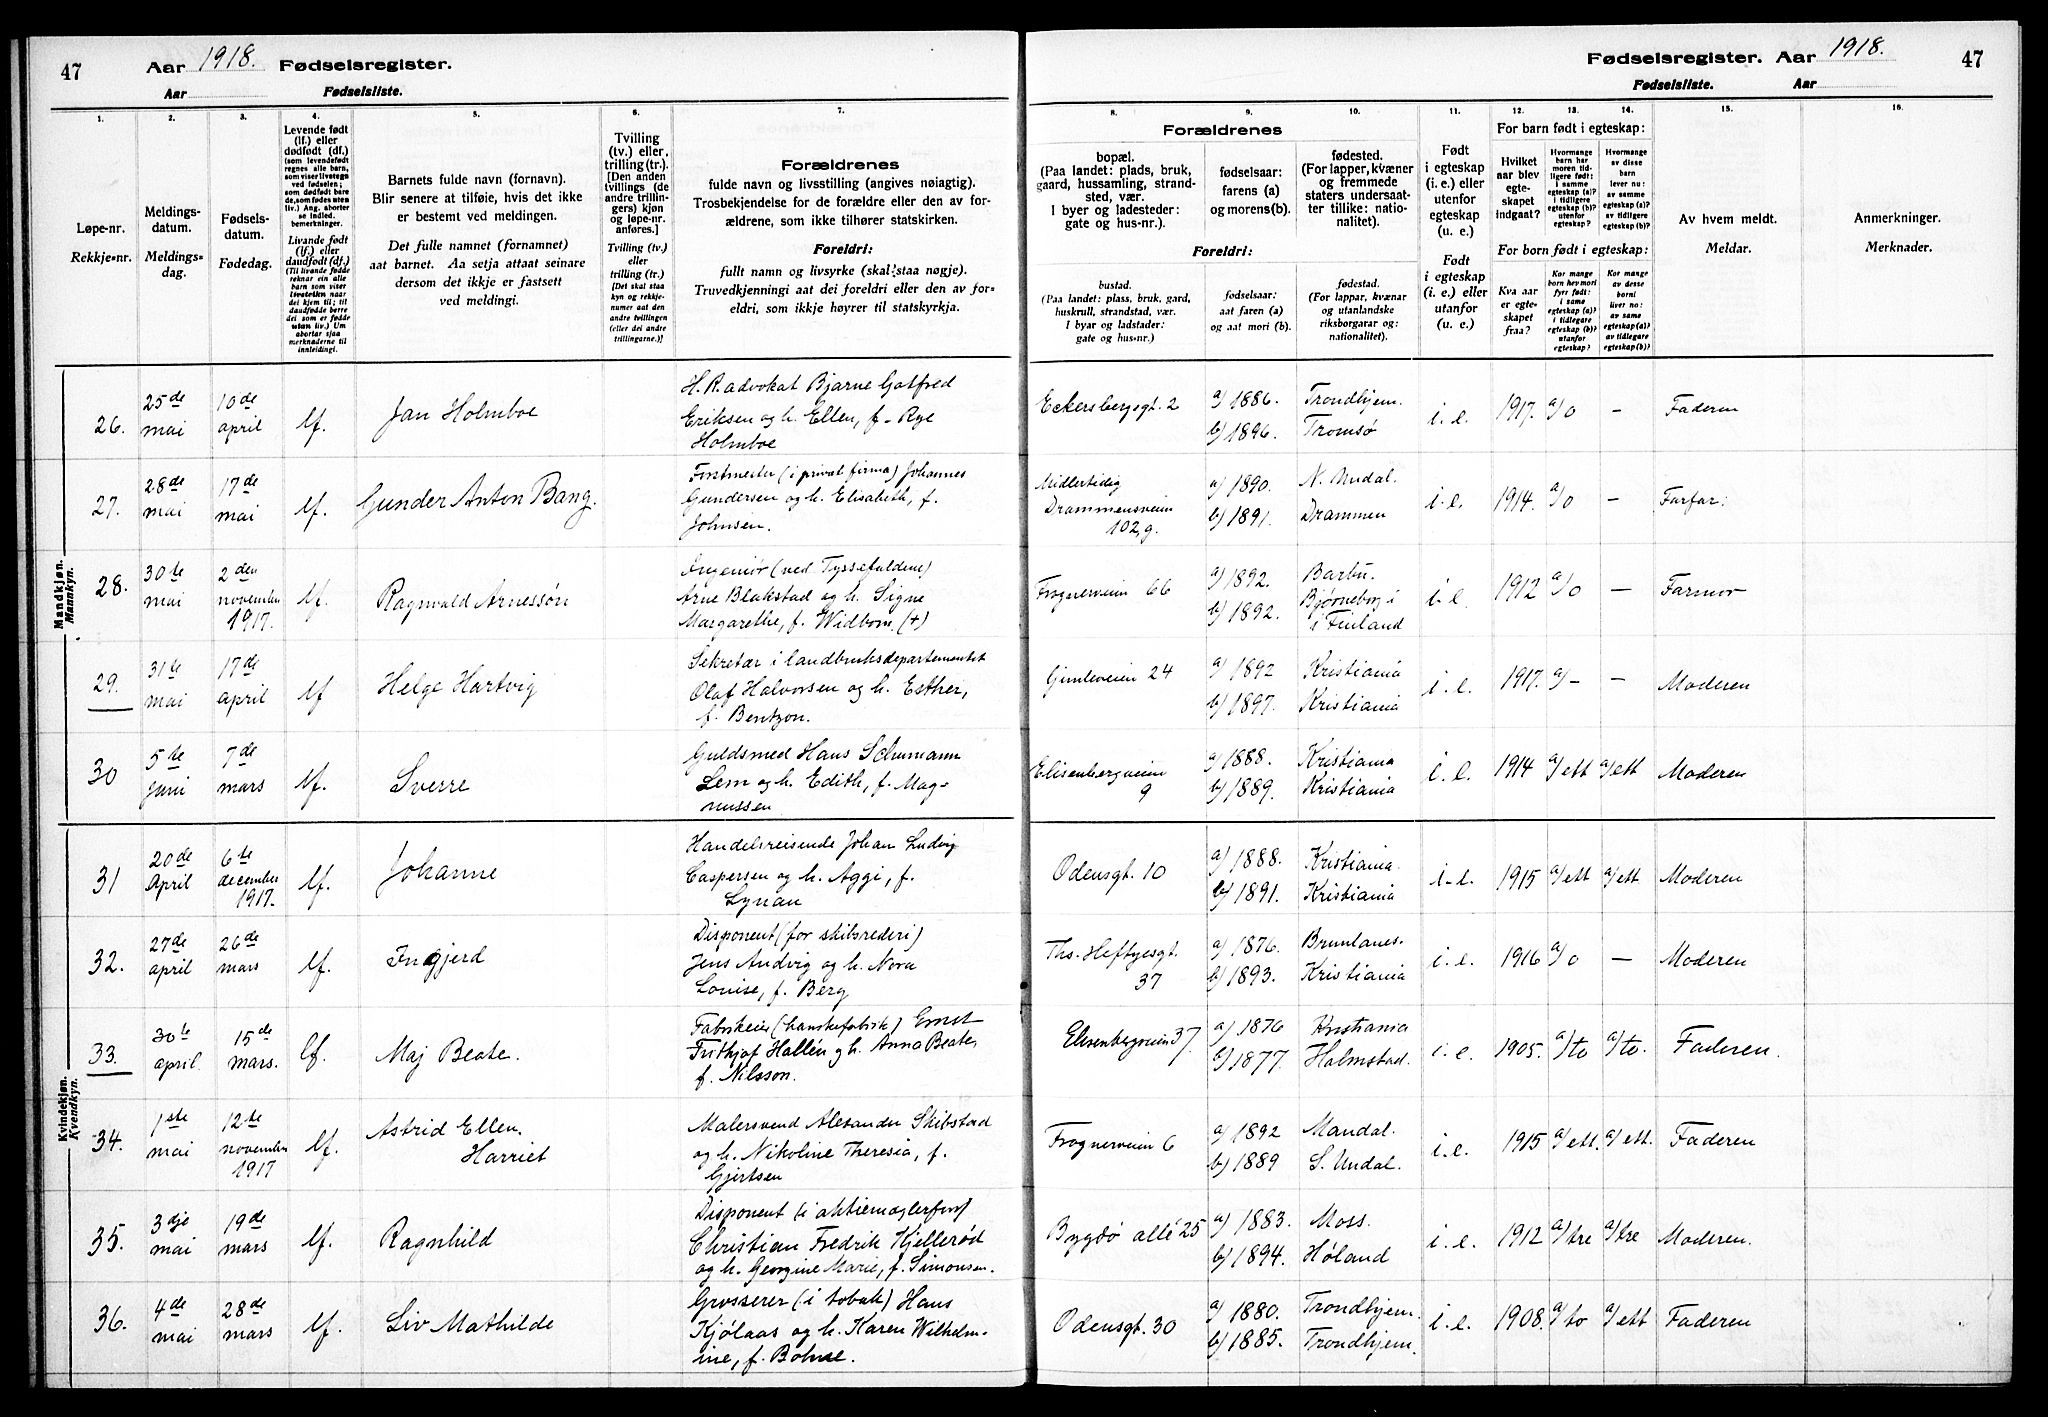 47 Aar 1918. Fødselsregister.
Aar Fødselsliste.
Fødselsregister. Aar 1918. 47
Fødselsliste. Aar
1.
Løpe-nr.
Rekkje-nr.
2.
Meldings-
datum.
Meldings-
dag.
3.
Fødsels-
datum.
Fødedag.
4.
Levende født
(lf.) eller
dødfødt (df.)
(som levendefødt
regnes alle barn,
som viser livstegn
ved fødselen;
som dødfødt bare
de, som fødes uten
liv.) Ang. aborter
se indled.
bemerkninger.
Livande født
(lf.) eller
daudfødt (df.)
(Til livande fødde
reknar ein alle
born som viser
livsteikn naar
dei kjem til; til
daudfødde berre
dei som er fødde
utan liv.) Um
abortar sjaa
merknaderne til
innleidingi.
5.
Barnets fulde navn (fornavn).
Blir senere at tilføie, hvis det ikke
er bestemt ved meldingen.
Det fulle namnet (fornamnet)
aat barnet. Aa setja attaat seinare
dersom det ikkje er fastsett
ved meldingi.
6.
Tvilling
(tv.) eller,
trilling (tr.).
[Den anden
tvillings (de
andre trillin-
gers) kjøn
og løpe-nr.
anføres.]
Tvilling (tv.)
eller
trilling (tr.)
[Det skal staa
kyn og rekkje-
numer aat den
andre tvillingen
(eller dei andre
trillingarne.)]
7.
Forældrenes
fulde navn og livsstilling (angives nøiagtig).
Trosbekjendelse for de forældre eller den av for-
ældrene, som ikke tilhører statskirken.
Foreldri:
fullt namn og livsyrke (skal staa nøgje).
Truvedkjenningi aat dei foreldri eller den av for-
eldri, som ikkje høyrer til statskyrkja.
Forældrenes
8.
bopæl.
(Paa landet: plads, bruk,
gaard, hussamling, strand-
sted, vær.
I byer og ladesteder:
gate og hus-nr.).
9.
fødselsaar:
farens (a)
og morens (b).
10.
fødested.
(For lapper, kvæner
og fremmede
staters undersaat-
ter tillike: natio-
nalitet).
Foreldri:
bustad.
(Paa landet: plass, bruk, gard,
huskrull, strandstad, vær.
I byar og ladstader:
gate og hus-nr.)
fødselsaar:
aat faren (a)
og aat mori (b).
fødestad.
(For lappar, kvænar
og utanlandske
riksborgarar og:
nationalitet).
11.
Født
i egteskap
(i. e.) eller
utenfor
egteskap
(u. e.)
Født
i egteskap
(i. e.) eller
utanfor
(u. e.)
For barn født i egteskap:
12.
Hvilket
aar blev
egte-
skapet
indgaat?
13.
Hvormange
barn har
moren tid-
ligere født:
i samme
egteskap (a)?
i tidligere
egteskap (b)?
utenfor
egteskap?
14.
Hvormange
av disse
barn
lever nu:
av samme
egteskap (a)?
av tidligere
egteskap (b)?
For born født i egteskap:
Kva aar
er egte-
skapet
fraa?
Kor mange
born hev mori
fyrr født:
i same
egteskap (a)?
i tidlegare
egteskap (b)?
utanfor
egteskap?
Kor mange
av desse
borni
liver no:
av same
egteskap (a)?
av tidlegare
egteskap (b)?
15.
Av hvem meldt.
Meldar.
16.
Anmerkninger.
Merknader.
Mandkjøn.
Mannkyn.
26. 25de mai 10de april lf. Jan Holmboe
H. R. advokat Bjarne Gotfred
Eriksen og h. Ellen, f. Rye
Holmboe
Eckersbergsgt. 2 a) 1886. Trondhjem. i. e. 1917. a/o – Faderen
b) 1896. Tromsø
27. 28de mai 17de mai lf. Gunder Anton Bang.
Forstmester (i privat firma) Johannes
Gundersen og h. Elisabeth, f.
Johnsen.
Midlertidig a) 1890. N. Undal. i. e. 1914. a/o – Farfar:
Drammensveien b) 1891. Drammen
102, g.
28. 30te mai 2den november 1917. lf. Ragnvald Arnessøn
Ingeniør (ved Tyssefaldene)
Arne Blakstad og h. Signe
Margarethe, f. Widbom. (+)
Frognerveien 66 a) 1892. Barbu. i. e. 1912 a/o – Farmor
b) 1892. Bjørneborg i
i Finland
29. 31te mai 17de april lf Helge Hartvig
Sekretær i landbruksdepartementet
Olaf Halvorsen og h. Esther,
f. Bentzon.
Gimleveien 24 a) 1892 Kristiania i. e. 1917. a/– – Moderen
b) 1897. Kristiania
30 5te juni 7de mars lf. Sverre
Guldsmed Hans Schumann
Lem og h. Edith, f. Mag-
nussen
Elisenbergveien a) 1888. Kristiania i. e. 1914 a/ett a/ett Moderen
9 b) 1889. Kristiania
Kvindekjøn.
Kvendkyn.
31 20de April 6te december 1917. lf. Johanne
Handelsreisende Johan Ludvig
Caspersen og h. Aggi, f.
Lynau
Odensgt. 10 a) 1888. Kristiania. i. e. 1915 a/ett a/ett Moderen
b) 1891. Kristiania
32. 27de april 26de mars lf. Ingjerd
Disponent (for skibsrederi)
Jens Andvig og h. Nora
Louise, f. Berg
Ths. Heftyesgt. a) 1876. Brunlanes. i. e. 1916 a/o – Moderen
37 b) 1893. Kristiania
33. 30te april. 15de mars. lf. Maj Beate.
Fabrikeier (hanskefabrik) Ernst
Frithjof Hallén og h. Anna Beate,
f. Nilsson.
Elisenbergveien 37. a) 1876 Kristiania i. e. 1905. a/to a/to. Faderen.
b) 1877. Halmstad.
34. 1ste mai 12te november 1917 lf. Astrid Ellen
Harriet
Malersvend Alexander Skibstad
og h. Nikoline Theresia, f.
Gjertsen
Frognerveien 6 a) 1892 Mandal. i. e. 1915 a/ett. a/ett. Faderen
b) 1889 S. Undal.
35. 3dje mai 19de mars lf. Ragnhild
Disponent (i aktiemæglerforr)
Christian Fredrik Kjellerød
og h. Georgine Marie, f. Simonsen.
Bygdø allé 25 a) 1883. Moss. i. e. 1912 a/tre a/tre Moderen.
b) 1894. Høland
36. 4de mai 28de mars lf. Liv Mathilde
Grosserer (i tobak) Hans
Kjølaas og h. Karen Wilhelm-
ine, f. Bohne.
Odensgt. 30 a) 1880. Trondhjem. i. e. 1908. a/to a/ett Faderen
b) 1885. Trondhjem.